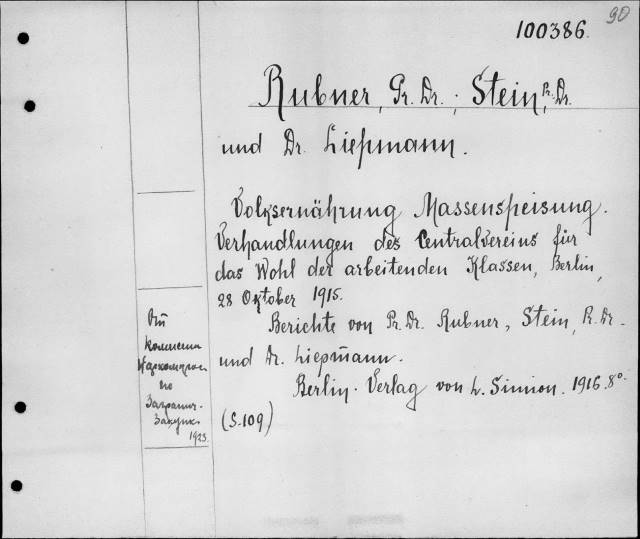 90
100386.
Rubner, Pr. Dr.; Stein, Pr. Dr.
und Dr. Liepmann.
Volksernährung Massenspeisung.
Verhandlungen des Centralvereins für
das Wohl der arbeitenden Klassen, Berlin,
28 Oktober 1915.
Berichte von Pr. Dr. Rubner, Stein, Pr. Dr.
und Dr. Liepmann.
Berlin. Verlag von L. Simion. 1916. 8°.
(S. 109)
От
комиссии
по
Загранич.
Закупк.
1923.